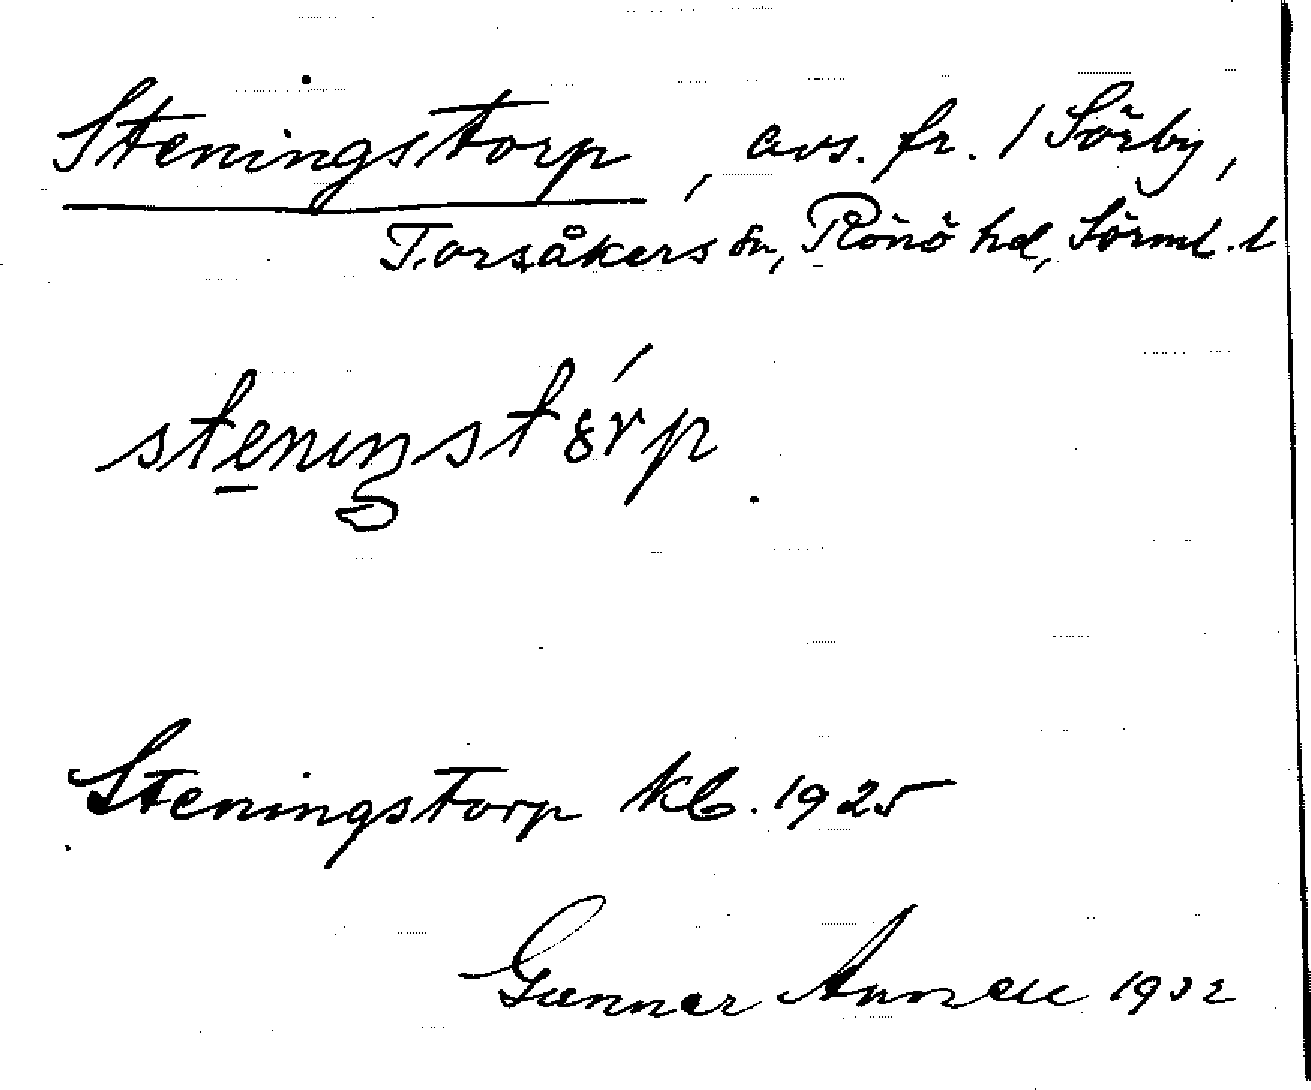 Steningstorp, avs. fr. 1 Sörby,
Torsåkers sn, Rönö hd, Sörml. l
stęniŋstór̀p
Steningstorp kb. 1925
Gunnar 1932